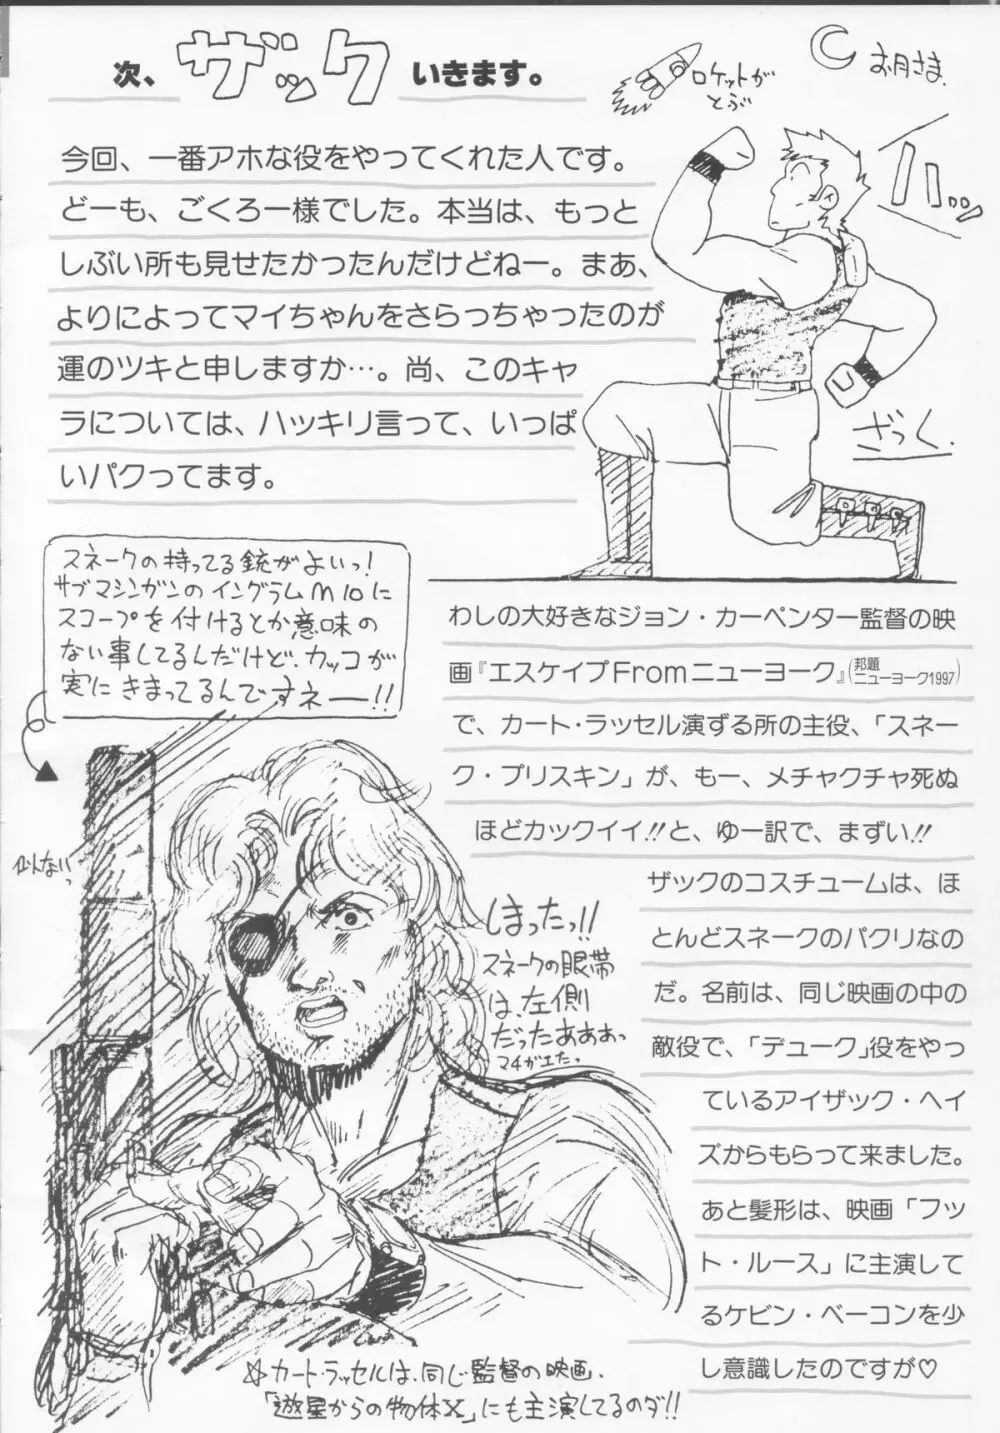 次、ザックいきます。
ロケットが
とぶ
お月さま
ハッ
今回、一番アホな役をやってくれた人です。
どーも、ごくろー様でした。本当は、もっと
しぶい所も見せたかったんだけどねー。まあ、
よりによってマイちゃんをさらっちゃったのが
運のツキと申しますか…。尚、このキャ
ラについては、ハッキリ言って、いっぱ
いパクってます。
ざっく.
スネークの持ってる銃がよいっ!
サブマシンガンのイングラムM10に
スコープを付けるとか意味の
ない事してるんだけど、カッコが
実にきまってるんですネー!!
わしの大好きなジョン・カーペンター監督の映
画『エスケイプFromニューヨーク』(邦題 ニューヨーク1997)
で、カート・ラッセル演ずる所の主役、「スネー
ク・プリスキン」が、もー、メチャクチャ死ぬ
ほどカックイイ!!と、ゆー訳で、まずい!!
ザックのコスチュームは、ほ
とんどスネークのパクリなの
だ。名前は、同じ映画の中の
敵役で、「デューク」役をやっ
ているアイザック・ヘイ
ズからもらって来ました。
あと髪形は、映画「フッ
ト・ルース」に主演して
るケビン・ベーコンを少
し意識したのですが♡
似んないっ
しまったっ!!
スネークの眼帯
は、左側
だったあぁぁっ
マチガエた。
☆カート・ラッセルは、同じ監督の映画、
「遊星からの物体X」にも主演してるのダ!!